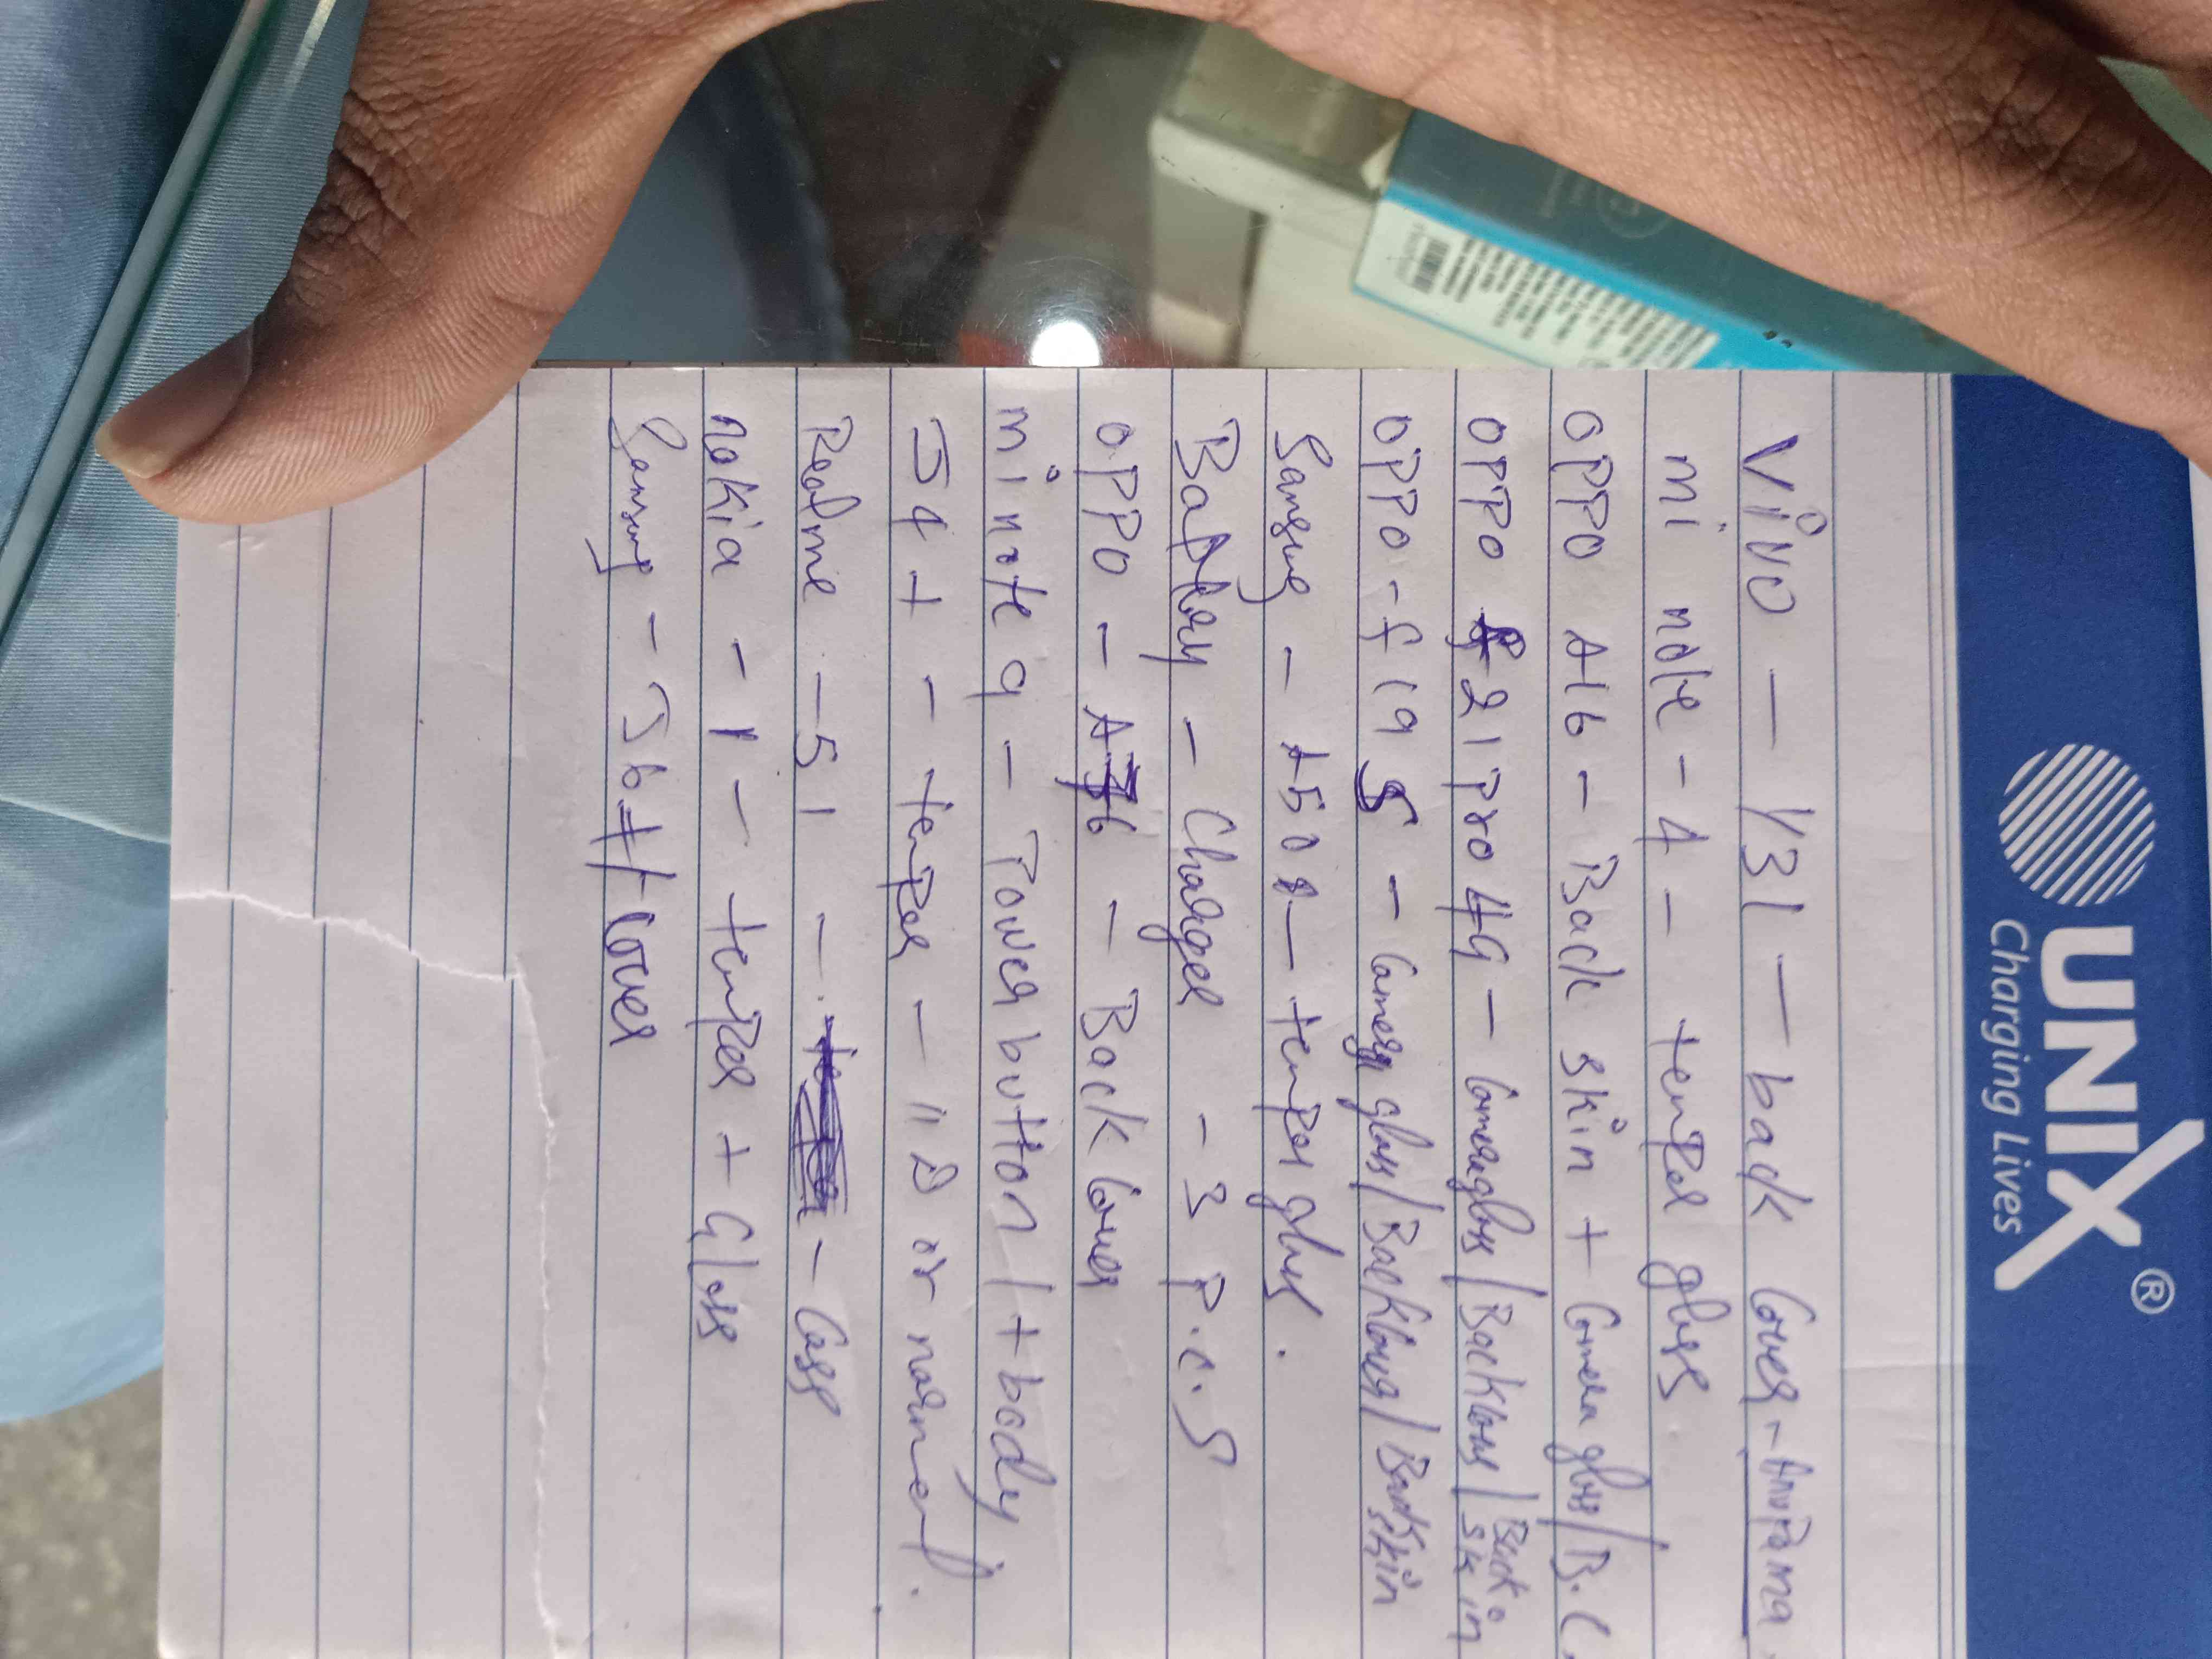 UNIX®
Charging Lives
Vivo — Y31 — back Cover - Anupama
mi note - 4 - temper glass
OPPO A16 - Back skin + Camera glass/B.C
OPPO f21 Pro 4G - Camera glass/Back Cover/Back skin
OPPO - f19 S - Camera glass/Back Cover/Back skin
Samsung - A50s - temper glass.
Battery - Charger - 3 P.C.S
OPPO - A76 - Back Cover
mi note 9 - Power button / + body
54 + - temper - 11D or normal.
Realme - 51 - - Case
nokia - 1 - temper + Glass
Samsung - J6+/Cover